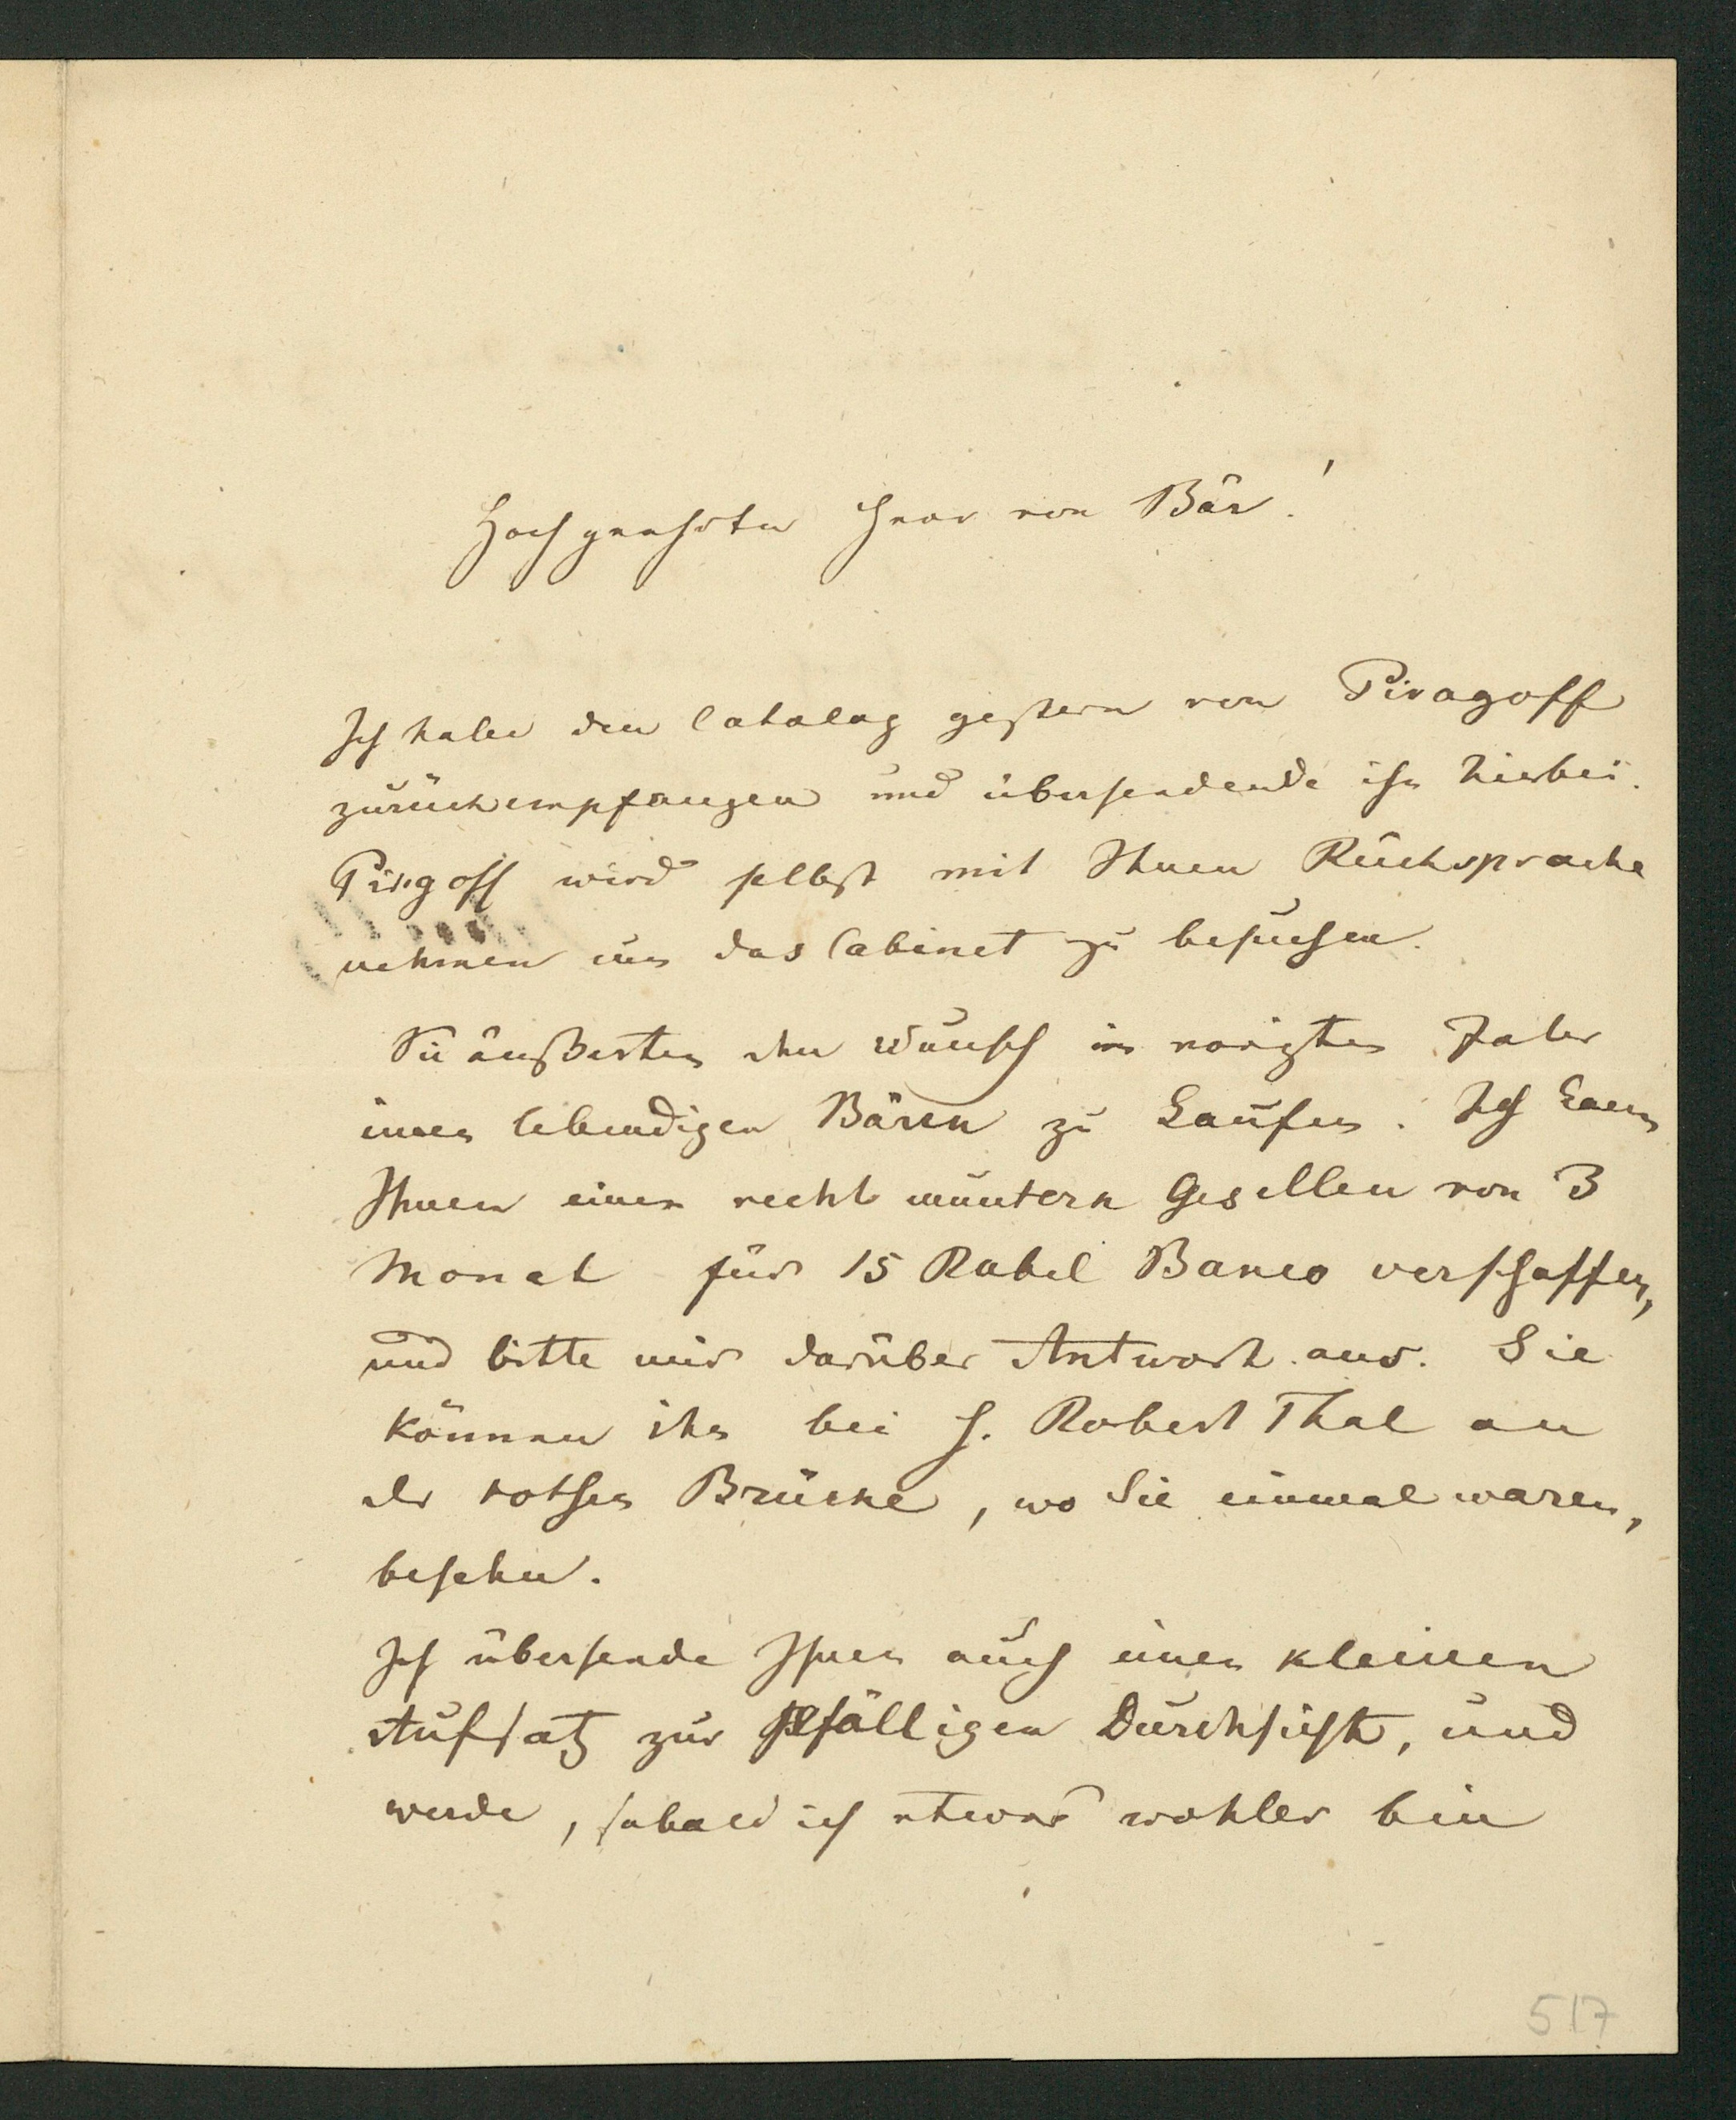 Hochgeehrter Herr von Bär!
Ich habe den Catalog gestern von Piragoff
zurückempfangen und übersendende ihn hierbei.
Pirgoff wird selbst mit Ihnen Rücksprache
nehmen um das Cabinet zu besuchen.
Sie äußerten den Wunsch im vorigten Jahr
einen lebendigen Bären zu kaufen. Ich kann
Ihnen einen recht muntern Gesellen von 3
Monat für 15 Rubel Banco verschaffen,
und bitte mir darüber Antwort aus. Sie
können ihn bei H. Robert Thal an
der rothen Brücke, wo Sie einmal waren,
besehn.
Ich übersende Ihnen auch einen kleinen
Aufsatz zur gefälligen Durchsicht, und
werde, sobald ich etwas wohler bin
517